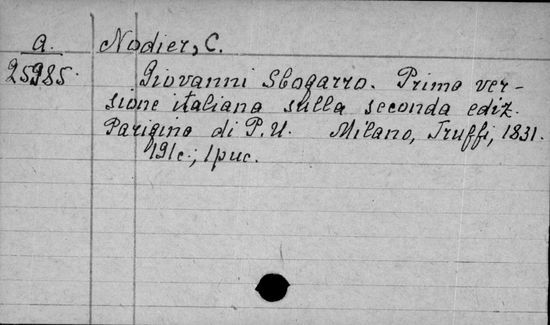 a. Nodier, C.
25985. Giovanni Sbogarro. Prima ver-
sione italiana sulla seconda ediz.
Parigina di P. U. Milano, Truffi, 1831.
191c.; 1рис.